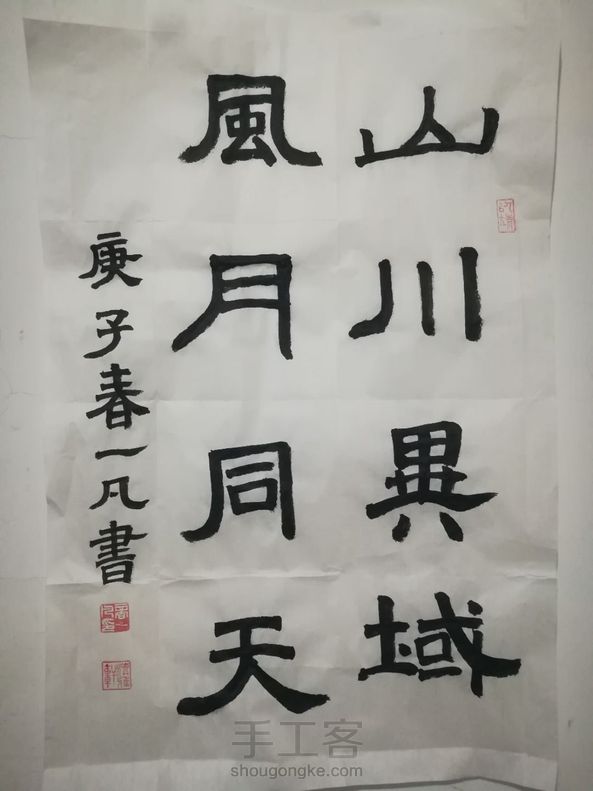 山川異域
風月同天
庚子春一凡書
手工客
shougongke.com